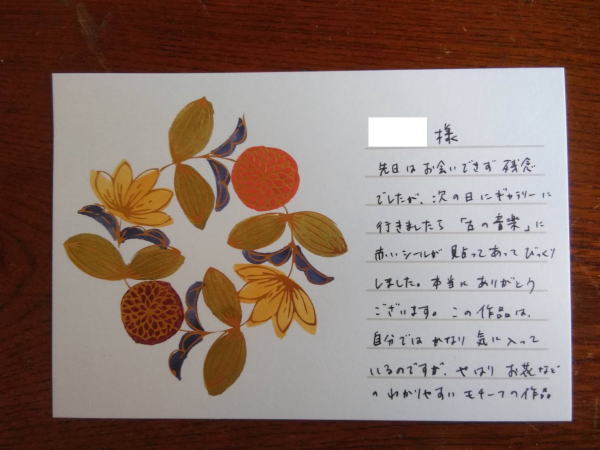 様
先日は お会いできず 残念
でしたが、次の日にギャラリーに
行きましたら「古の音楽」に
赤いシールが 貼ってあって びっくり
しました。本当に ありがとう
ございます。この作品は、
自分では かなり 気に入って
いるのですが、やはり お花など
の わかりやすい モチーフの作品